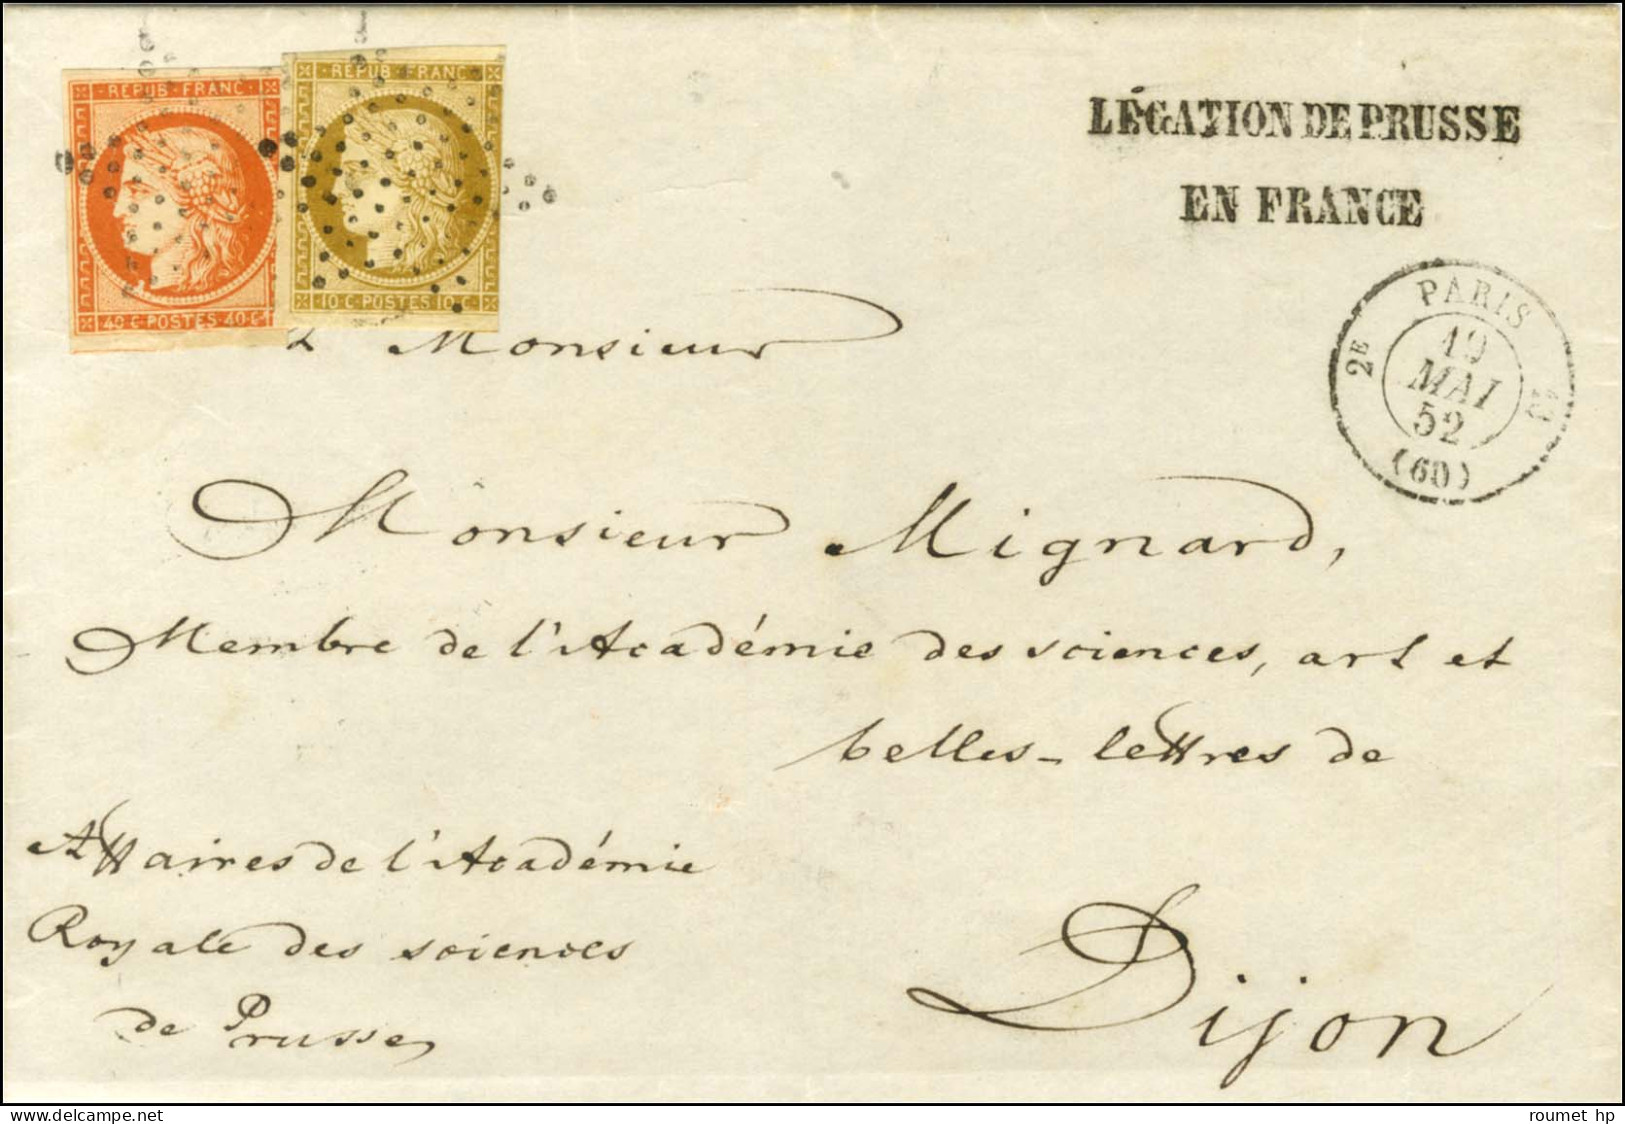 REPUB. FRANC.
40 C. POSTES 40 C.
REPUB. FRANC.
10 C. POSTES 10 C.
LÉGATION DE PRUSSE
EN FRANCE
PARIS
2E
19
MAI
52
(60)
A Monsieur
Monsieur Mignard,
Membre de l'Académie des sciences, art et
belles-lettres de
Dijon
Affaires de l'Académie
Royale des sciences
de Prusse
© delcampe.net
roumet hp